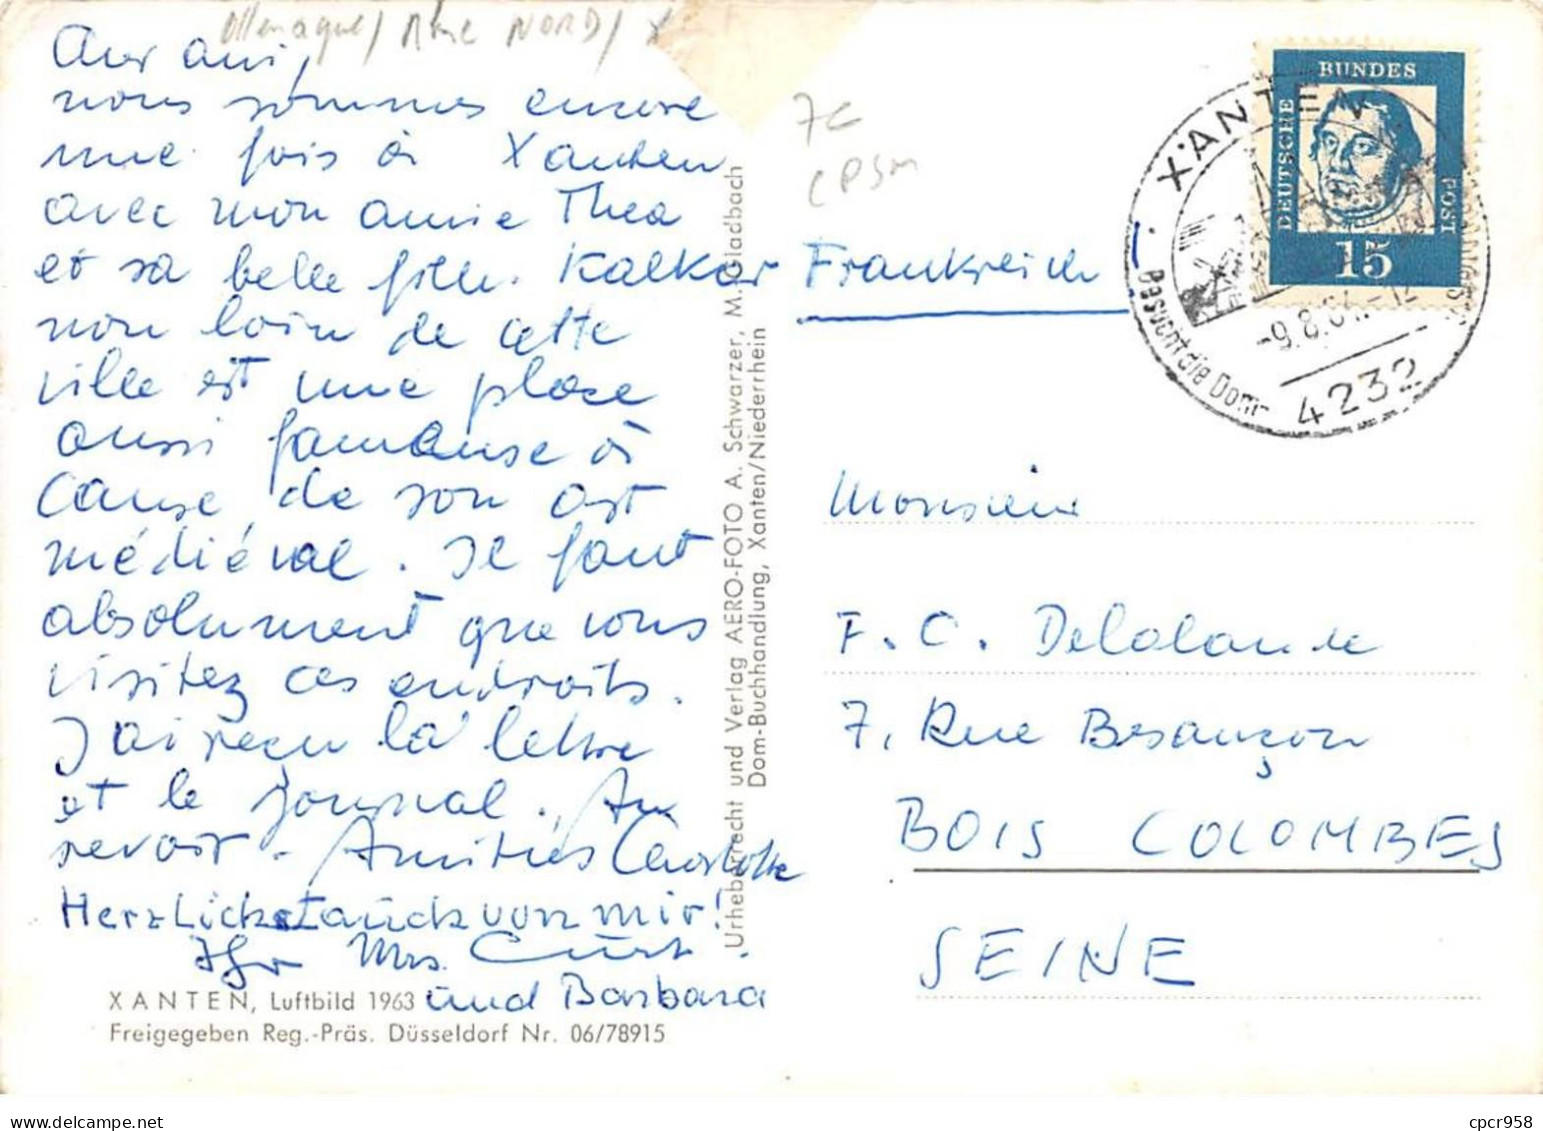 Allemagne / Rhé NORD / X
Cher ami,
nous sommes encore
une fois à Xanten
avec mon amie Thea
et sa belle fille. Kalkar
non loin de cette
ville est une place
aussi fameuse à
cause de son art
médiéval. Il faut
absolument que vous
visitez ces endroits.
J'ai reçu la lettre
et le journal. Au
revoir. Amitiés Charlotte
Herzlichst auch von mir!
Ihr Mrs. Curt
und Barbara
XANTEN, Luftbild 1963
Freigegeben Reg.-Präs. Düsseldorf Nr. 06/78915
Urheberrecht und Verlag AERO-FOTO A. Schwarzer, M.Gladbach
Dom-Buchhandlung, Xanten/Niederrhein
7€
CPSM
DEUTSCHE BUNDES POST
15
XANTEN
-9.8.64.-12
Besucht die Dom-
4232
Frankreich
Monsieur
F. C. Delalande
7, Rue Besançon
BOIS COLOMBES
SEINE
cpcr958